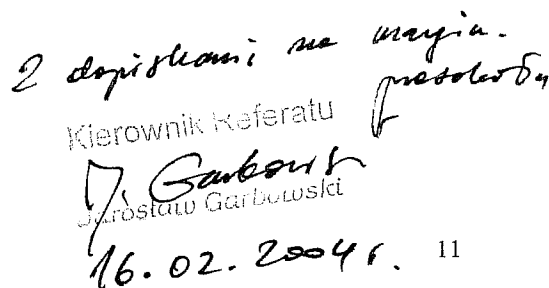 Z dopiskami na margin.
protokołu
Kierownik Referatu
J. Garbowski
Jarosław Garbowski
16.02.2004 r. 11